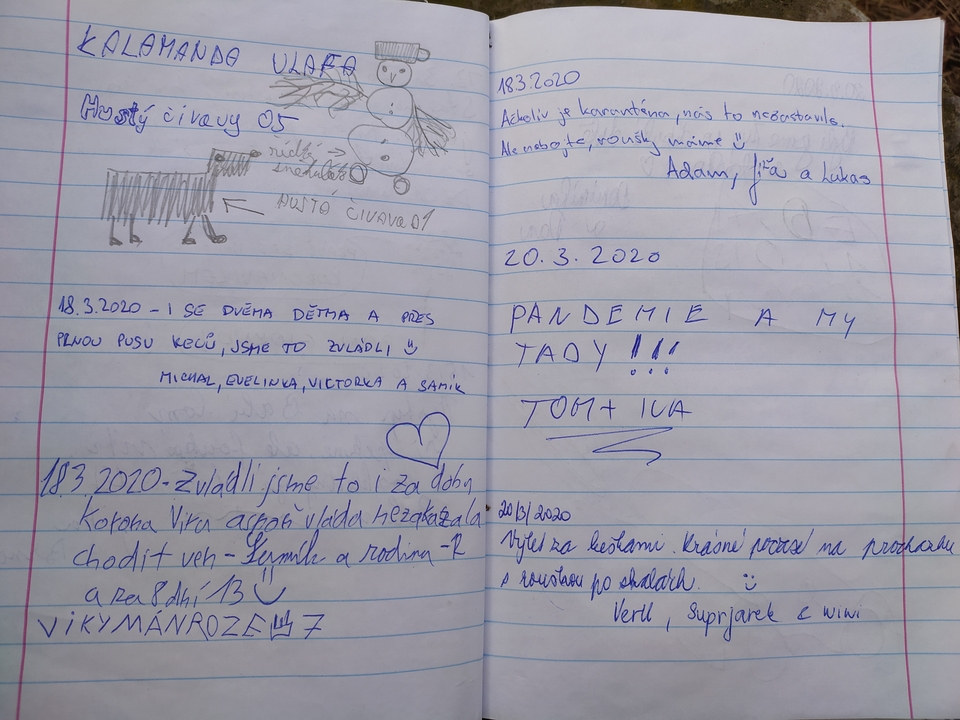 KALAMANDA VLAFA
Hustý čivavy 05
řídký →
sněhulák
HUSTÁ ČIVAVA 01
18.3.2020 - I SE DVĚMA DĚTMA A PŘES
PLNOU PUSU KECŮ, JSME TO ZVLÁDLI
MICHAL, EVELINKA, VICTORKA A SAMÍK
18.3.2020 - zvládli jsme to i za doby
Korona Viru aspoň vláda nezakázala
chodit ven - a rodina -R
a za 8 dní 13
VIKYMÁNROZE 7
18.3.2020
Ačkoliv je karanténa, nás to nezastavilo.
Ale nebojte, roušky máme
Adam, Jíťa a Lukas
20. 3. 2020
PANDEMIE A MY
TADY !!!
TOM + IVA
20/3/2020
Výlet za keškami. Krásné počasí na procházku
s rouškou po skalách.
Vertl, Suprjarek & wiwi